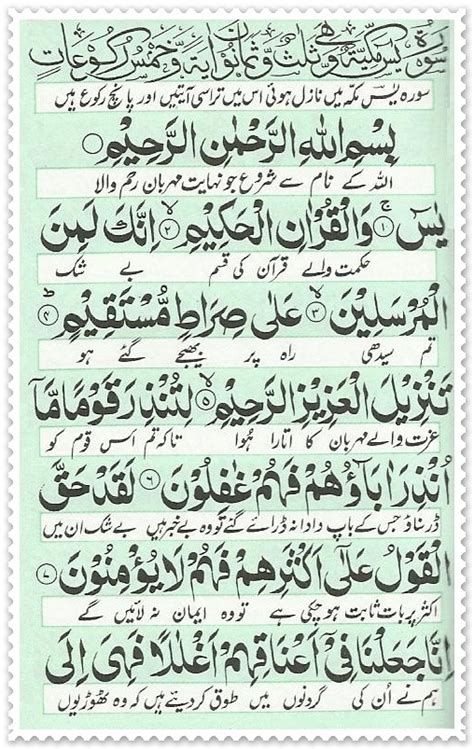 سورة يس مكية وهي ثلث وثمانون اية وخمس ركوعات
سورہ یٰسٓ مکہ میں نازل ہوئی اس میں تراسی آیتیں اور پانچ رکوع ہیں
بِسْمِ اللهِ الرَّحْمٰنِ الرَّحِيْمِ
اللہ کے نام سے شروع جو نہایت مہربان رحم والا
يٰسٓ ۚ﴿۱﴾ وَالْقُرْاٰنِ الْحَكِيْمِ ۙ﴿۲﴾ اِنَّكَ لَمِنَ
حکمت والے قرآن کی قسم بے شک
الْمُرْسَلِيْنَ ۙ﴿۳﴾ عَلٰى صِرَاطٍ مُّسْتَقِيْمٍ ؕ﴿۴﴾
تم سیدھی راہ پر بھیجے گئے ہو
تَنْزِيْلَ الْعَزِيْزِ الرَّحِيْمِ ۙ﴿۵﴾ لِتُنْذِرَ قَوْمًا مَّاۤ
عزت والے مہربان کا اتارا ہُوا تاکہ تم اس قوم کو
اُنْذِرَ اٰبَآؤُهُمْ فَهُمْ غٰفِلُوْنَ ﴿۶﴾ لَقَدْ حَقَّ
ڈر سناؤ جس کے باپ دادا نہ ڈرائے گئے تو وہ بے خبر ہیں بے شک ان میں
الْقَوْلُ عَلٰۤى اَكْثَرِهِمْ فَهُمْ لَا يُؤْمِنُوْنَ ﴿۷﴾
اکثر پر بات ثابت ہو چکی ہے تو وہ ایمان نہ لائیں گے
اِنَّا جَعَلْنَا فِيْۤ اَعْنَاقِهِمْ اَغْلٰلًا فَهِيَ اِلَى
ہم نے اُن کی گردنوں میں طوق کر دیئے ہیں کہ وہ ٹھوڑیوں